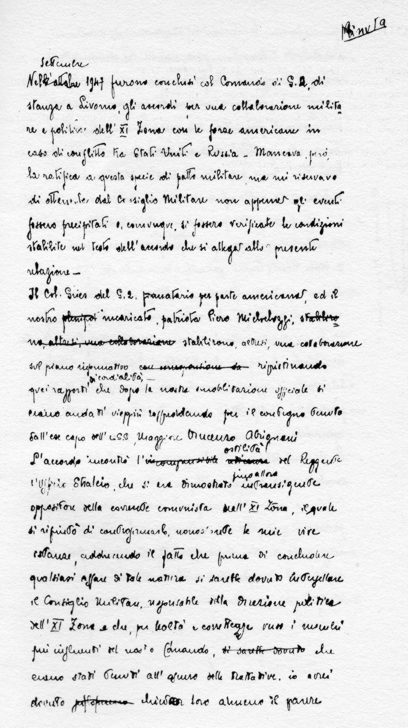 Minuta
settembre
Nell'ottobre 1947 furono conclusi col Comando di G.2, di
stanza a Livorno, gli accordi per una collaborazione milita
re e politica dell' XI Zona con le forze americane in
caso di conflitto tra Stati Uniti e Russia - Mancava, però,
la ratifica a questa specie di patto militare, ma mi riservavo
di ottenerla dal Consiglio Militare non appena gli eventi
fossero precipitati o, comunque, si fossero verificate le condizioni
stabilite nel testo dell'accordo che si allega alla presente
relazione -
Il Col. del G.2. per parte americana, ed il
nostro incaricato, patriota Piero Michelozzi, stabilire
no, altresì, una collaborazione stabilirono, altresì, una collaborazione
sul piano informativo ripristinando
quei rapporti di cordialità - che dopo la nostra smobilitazione ufficiale si
erano andati viepiù raffreddando per il contegno tenuto
dall'ex capo dell' Maggiore Vincenzo Abrignani
L'accordo incontrò l'incomprensibile ostilità del Reggente
l'Ufficio Stralcio, che si era dimostrato fino allora intransigente
oppositore della corrente comunista nell' XI Zona, il quale
si rifiutò di controfirmarlo, nonostante le mie vive
istanze, adducendo il fatto che prima di concludere
qualsiasi affare di tale natura si sarebbe dovuto interpellare
il Consiglio Militare, responsabile della Direzione politica
dell' XI Zona e che, per lealtà e correttezza verso i membri
più influenti del nostro Comando, si sarebbe dovuto che
erano stati tenuti all'oscuro delle trattative, io avrei
dovuto chiedere loro almeno il parere